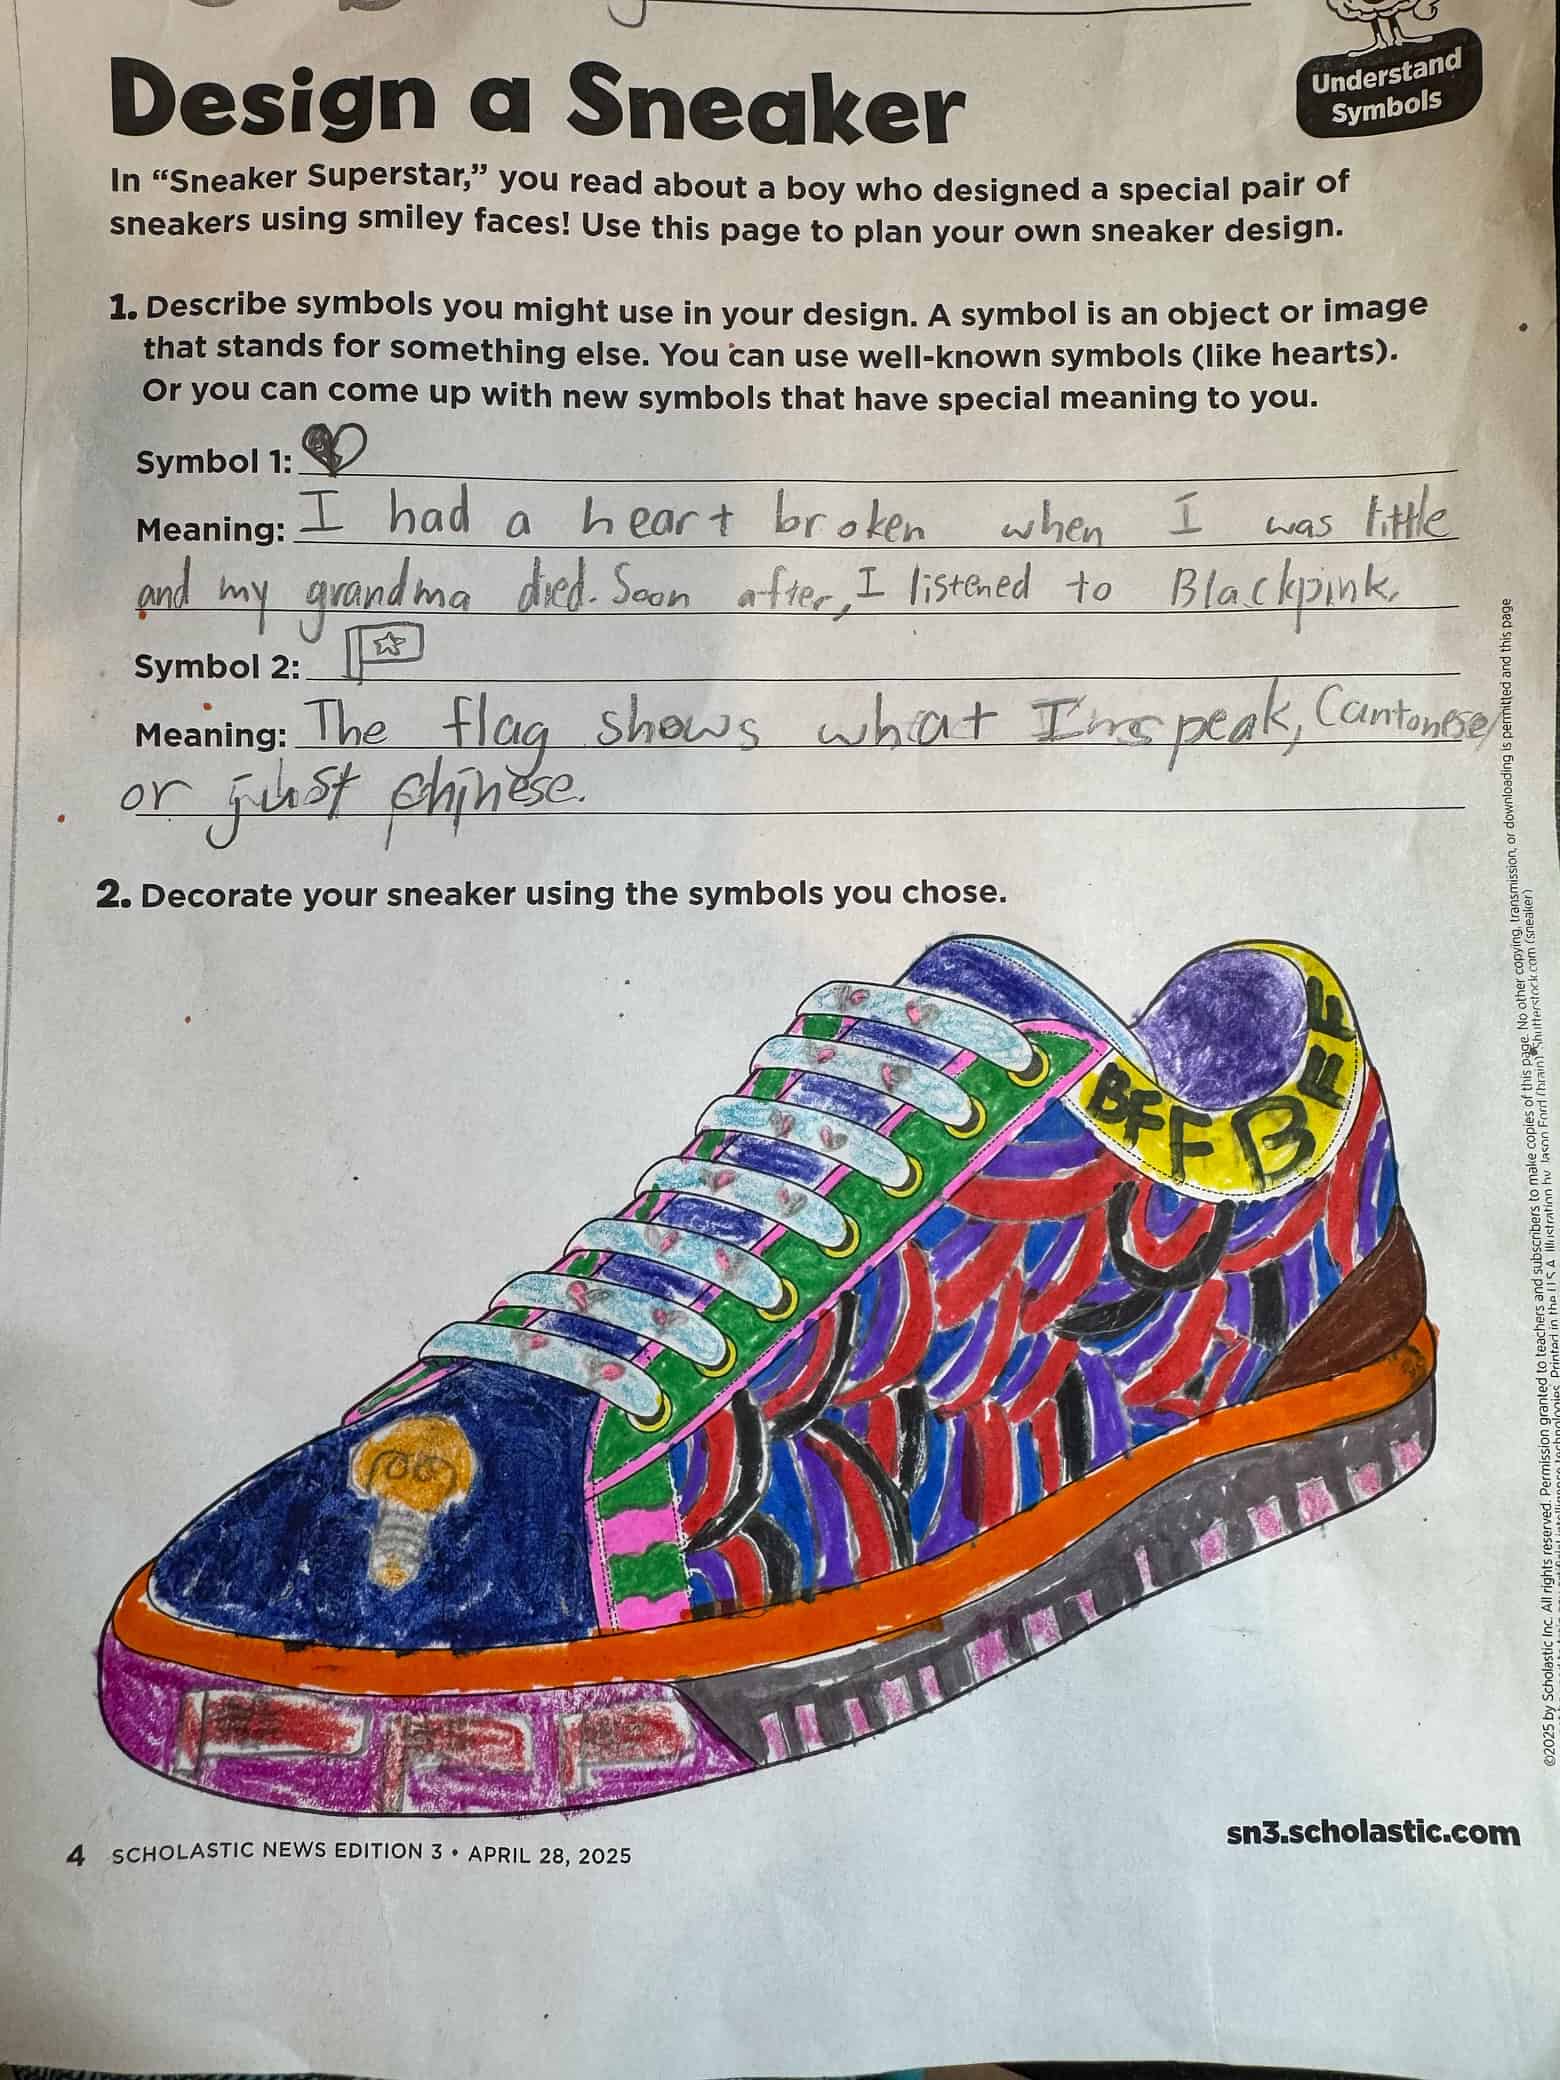 Design a Sneaker
Understand
Symbols
In “Sneaker Superstar,” you read about a boy who designed a special pair of
sneakers using smiley faces! Use this page to plan your own sneaker design.
1. Describe symbols you might use in your design. A symbol is an object or image
that stands for something else. You can use well-known symbols (like hearts).
Or you can come up with new symbols that have special meaning to you.
Symbol 1:
Meaning: I had a heart broken when I was little
and my grandma died. Soon after, I listened to Blackpink.
Symbol 2:
Meaning: The flag shows what I'm speak, Cantonese/
or just chinese.
2. Decorate your sneaker using the symbols you chose.
BFF BFF
4 SCHOLASTIC NEWS EDITION 3 • APRIL 28, 2025
sn3.scholastic.com
©2025 by Scholastic Inc. All rights reserved. Permission granted to teachers and subscribers to make copies of this page. No other copying, transmission, or downloading is permitted and this page
Printed in the U.S.A. Illustration by Jason Ford (brain) Shutterstock.com (sneaker)